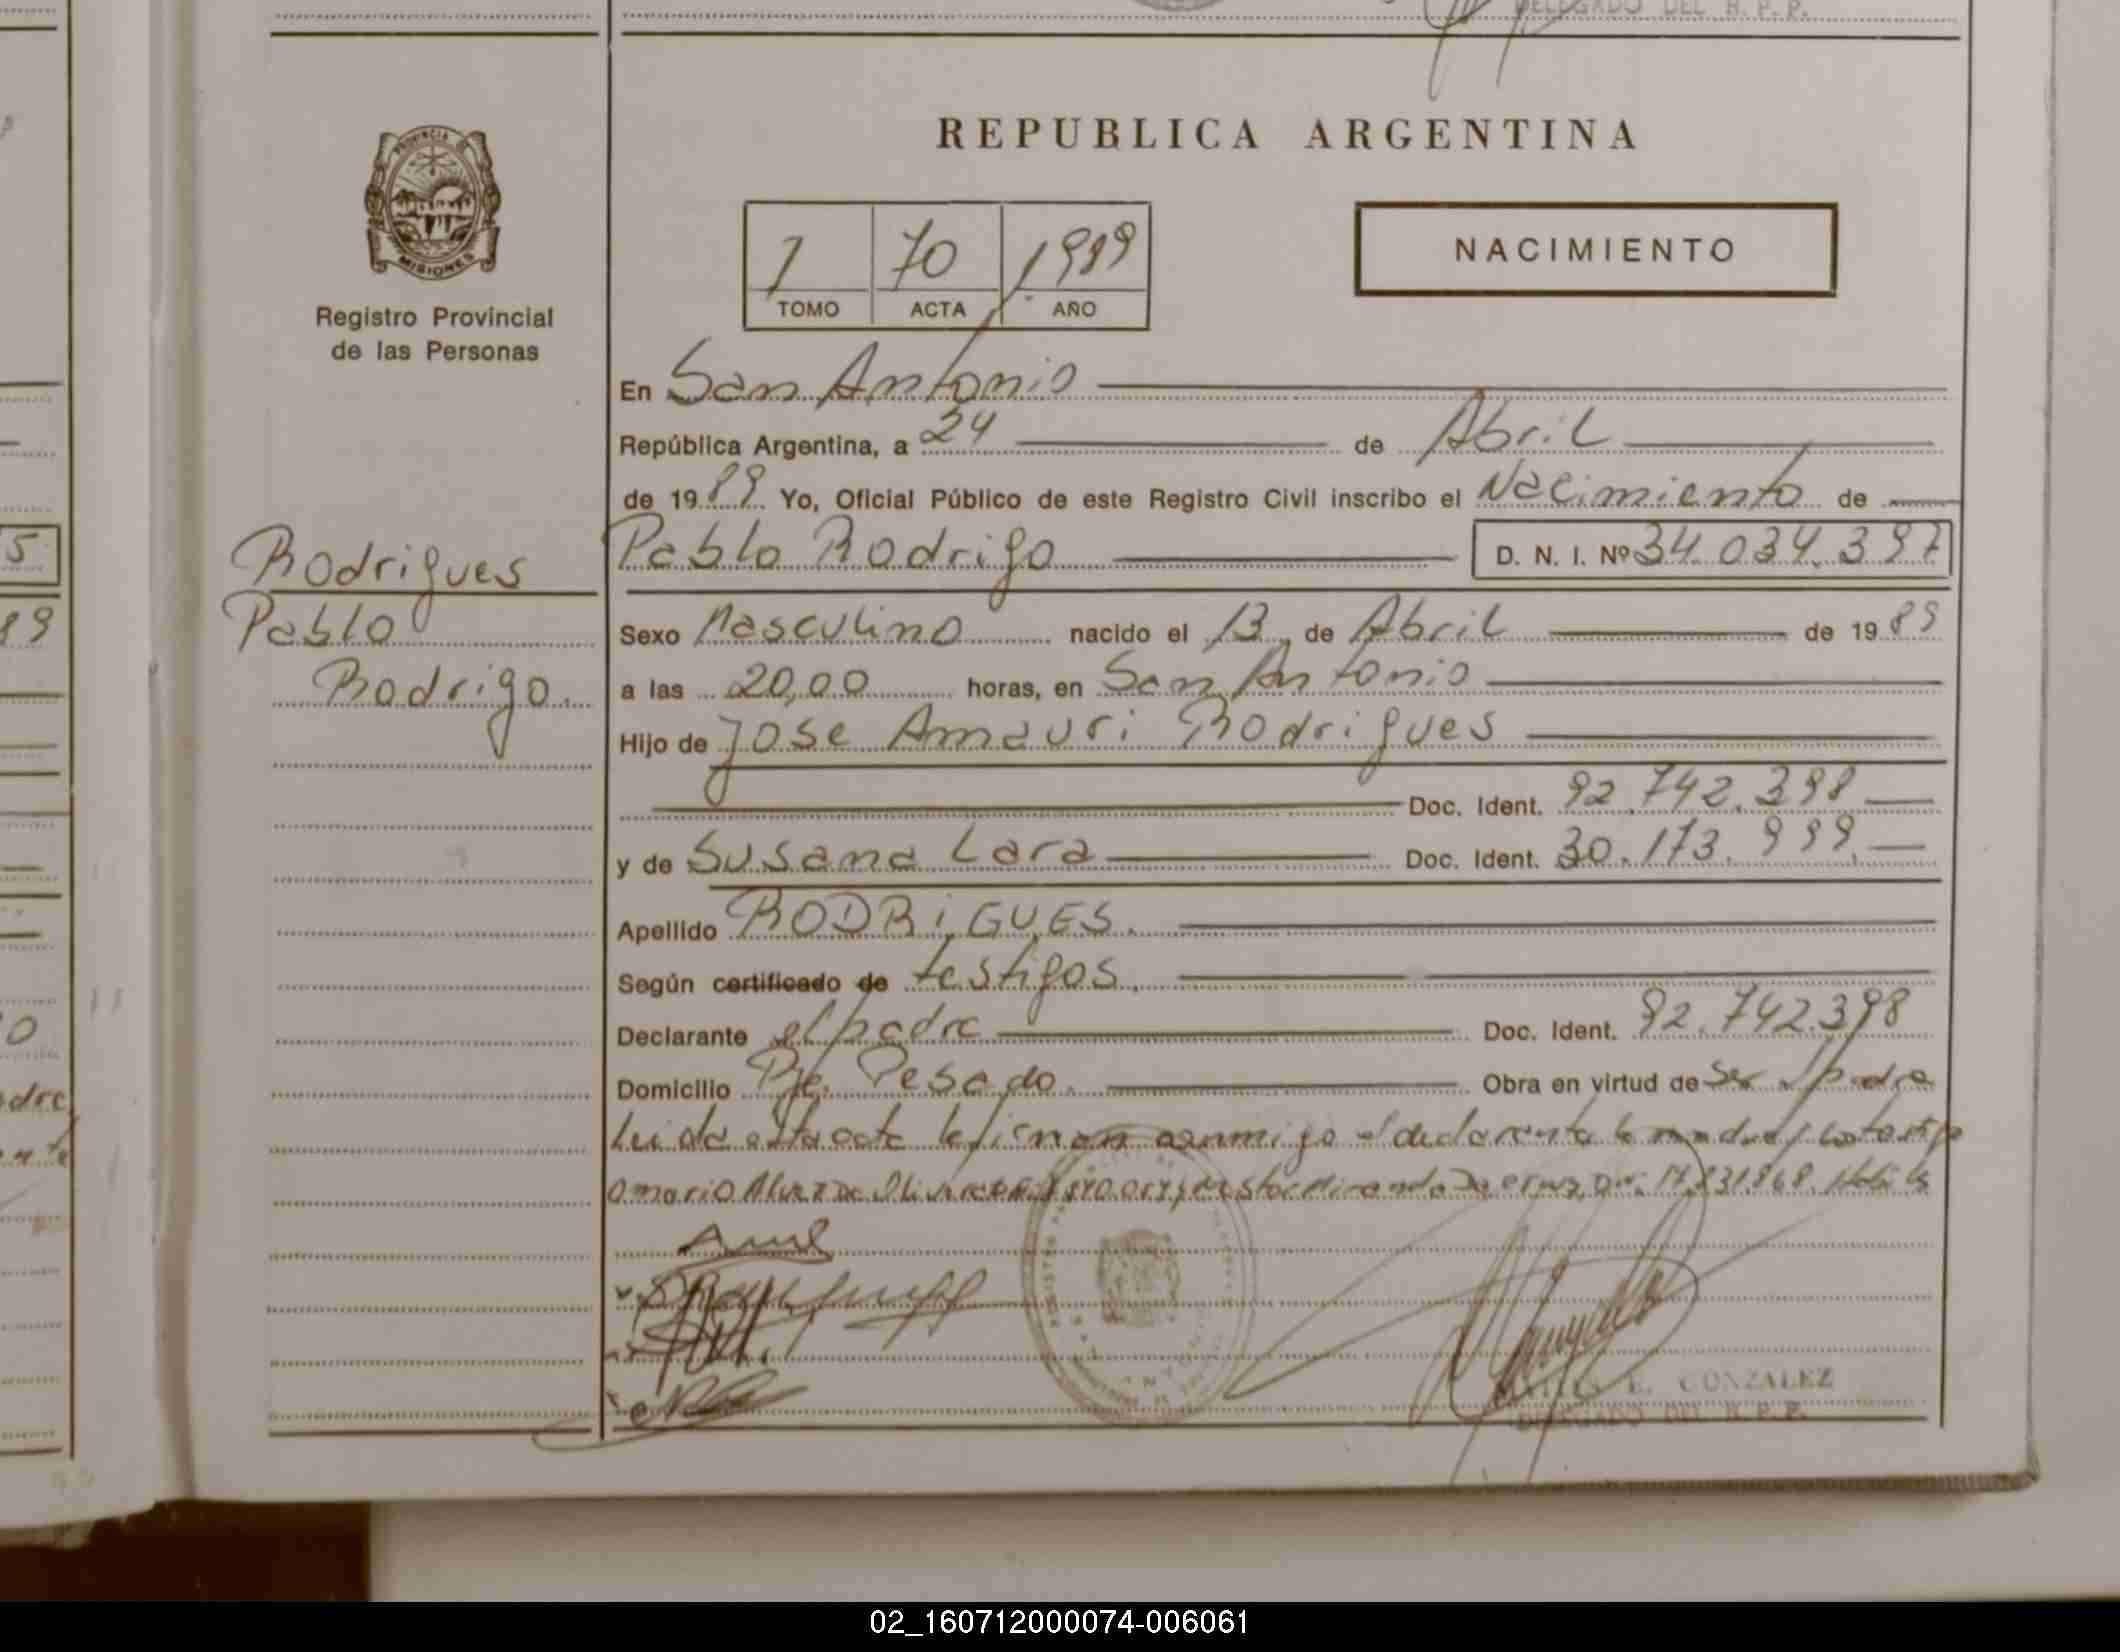 DELEGADO DEL R.P.P.
REPUBLICA ARGENTINA
PROVINCIA DE
MISIONES
Registro Provincial
de las Personas
1 70 1989
TOMO ACTA AÑO
NACIMIENTO
En San Antonio
República Argentina, a 24 de Abril
de 1989 Yo, Oficial Público de este Registro Civil inscribo el Nacimiento de
Rodrigues
Pablo
Rodrigo.
Pablo Rodrigo D. N. I. Nº 34.034.397
Sexo Masculino nacido el 13 de Abril de 1989
a las 20,00 horas, en San Antonio
Hijo de Jose Amauri Rodrigues
Doc. Ident. 92.742.398
y de Susana Lara Doc. Ident. 30.173.999.
Apellido RODRIGUES.
Según certificado de testigos.
Declarante el padre Doc. Ident. 92.742.398
Domicilio Pje. Pesado. Obra en virtud de ser el padre
Leida esta acta la firman conmigo el declarante la madre y los testigo
17.831.868.
GONZALEZ
DELEGADO DEL R.P.P.
5
89
0
02_160712000074-006061